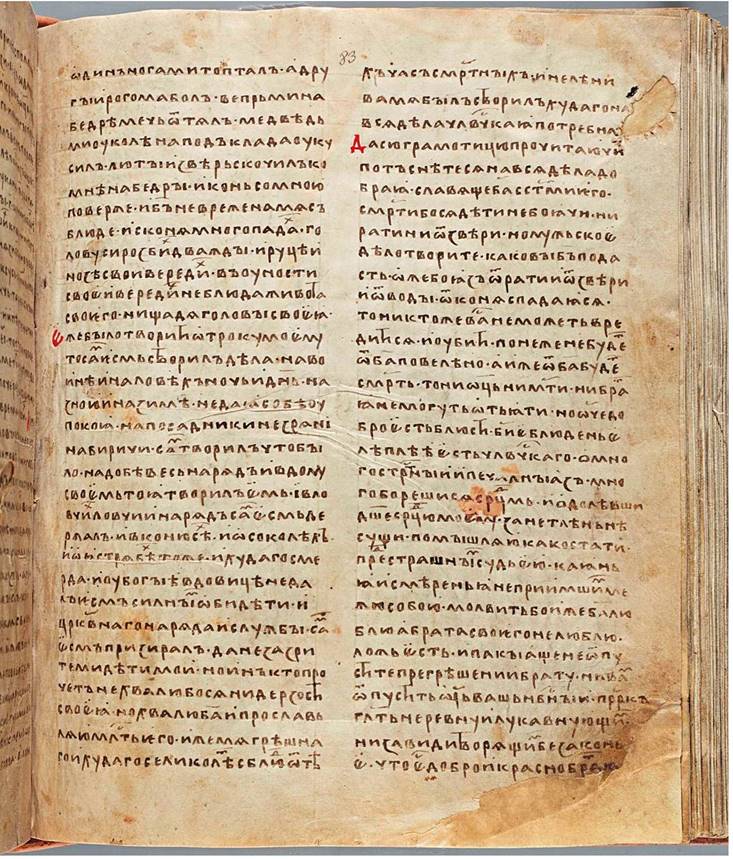 83
ѡдинъ ногами топталъ · а дру
гъıи рогома болъ · вепрь ми на
бедрѣ мечь ѿтѧлъ · медвѣдь
ми оу колѣна подъклада оуку
силъ · лютъıи звѣрь скочилъ ко
мнѣ на бедръı · и конь со мною
поверже · и б҃ъ невережена мѧ съ
блюде · и с конѧ много падах · го
лову си розбих дваждъı · и руцѣ и
нозѣ свои вередих · въ оуности
своєи вередих не блюда живота
своєго · ни щадѧ головъı своєӕ ·
Єже бъıло творити ѡтроку моєму
то сам єсмь створилъ · дѣла на во
инѣ и на ловѣхъ · ночь и днь · на
зною и на зимѣ · не даӕ собѣ оу
покоӕ · на посадники не зрѧ ни
на биричи · сам творилъ что бъı
ло надобѣ весь нарѧдъ и в дому
своємь то ӕ творилъ єсмь · и в ло
вчих ловчии нарѧдъ сам єсмь де
ржалъ · и в конюсѣх · и ѡ соколѣхъ
и ѡ ӕстрѧбѣх · тоже и худаго сме
рда · и оубогъıѣ вдовицѣ не да
лъ єсмъ силнъıм ѡбидѣти · и
црквнаго нарѧда и службъı сам
єсмъ призиралъ · да не зазри
те ми дѣти мои · но инъ кто про
четъ не хвалю бо сѧ ни дерзости
своєӕ · но хвалю ба и прославь
лѧю млть єго · иже мѧ грѣшна
го и худаго селико лѣт сблюд ѿ тѣх
хъ часъ смртнъıхъ · и не лѣни
ва мѧ бъıлъ створилъ худаго на
всѧ дѣла члвчкаӕ потребна
Да сю грамотицю прочитаючи
потъснѣтесѧ на всѧ дѣла до
браӕ · славѧще ба с стми єго ·
смрти бо сѧ дѣти не боӕчи · ни
рати ни ѿ звѣри · но мужьскоє
дѣло творите · како въı бъ пода
сть · ѡже бо ӕзъ ѿ рати и ѿ звѣри
и ѿ водъı · ѿ конѧ спадаӕсѧ ·
то никтоже вас не можеть вре
дитисѧ и оубити · понеже не будет
ѿ ба повелѣно · а иже ѿ ба будет
смрть · то ни ѡць ни мти · ни бра
ӕ не могуть ѿӕти · но ѡче до
бро єсть блюсти · биє блюденьє
лѣплѣє єсть члвчкаго · ѡ мно
гострастнъıи и печалнъı азъ · мно
го борешисѧ срцмь · и ѡдолѣвши
дше срцю моєму · занє тлѣньнѣ
сущи помъıшлѧю како стати
пре страшнъıм судьєю · каӕнь
ӕ и смѣреньӕ не приимшим ме
жю собою · молвить бо иже ба лю
блю · а брата своєго не люблю ·
ложь єсть · и пакъı аще не ѿпу
стите прегрѣшении брату · ни вам
ѿпустить ѡць вашь нбнъıи · прркъ
глть не ревнуи лукавнующим
ни завиди творѧщим безаконь
є · что єс добро и красно